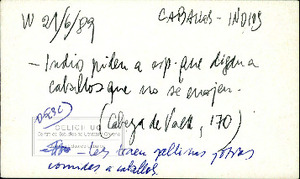 W 21/6/89 CABALLOS - INDIOS
- Indios piden a esp. que digan a
caballos que no se enojen.
(Cabeza de Vaca, 170)
DESC
CELICH UC
- Les traen gallinas y otras
comidas a caballos.